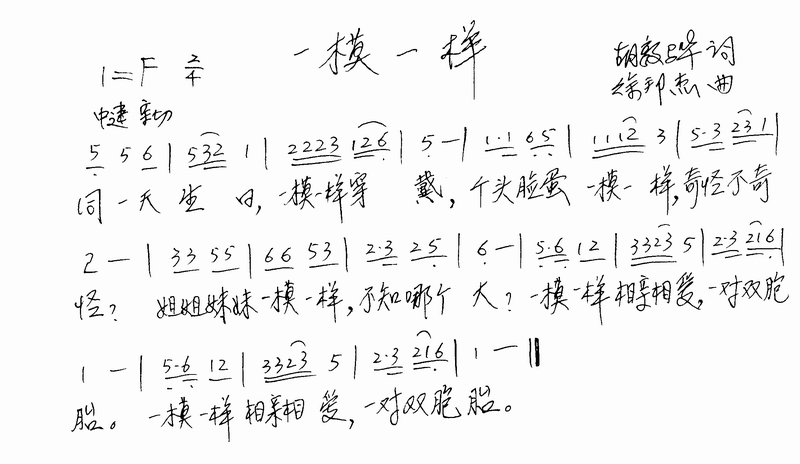 一模一样
1=F 2/4
胡敦骅 词
徐邦杰 曲
中速 亲切
5 5 6 | 5 3 2 1 | 2 2 2 3 1 2 6 | 5 — | 1·1 6 5 | 1 1 1 2 3 | 5·3 2 3 1 |
同一天 生 日,一模一样穿 戴,个头脸蛋 一模一样,奇怪不奇
2 — | 3 3 5 5 | 6 6 5 3 | 2·3 2 5 | 6 — | 5·6 1 2 | 3 3 2 3 5 | 2·3 2 1 6 |
怪? 姐姐妹妹一模一样,不知哪个 大?一模一样相亲相爱,一对双胞
1 — | 5·6 1 2 | 3 3 2 3 5 | 2·3 2 1 6 | 1 — ‖
胎。 一模一样 相亲相 爱,一对双胞 胎。